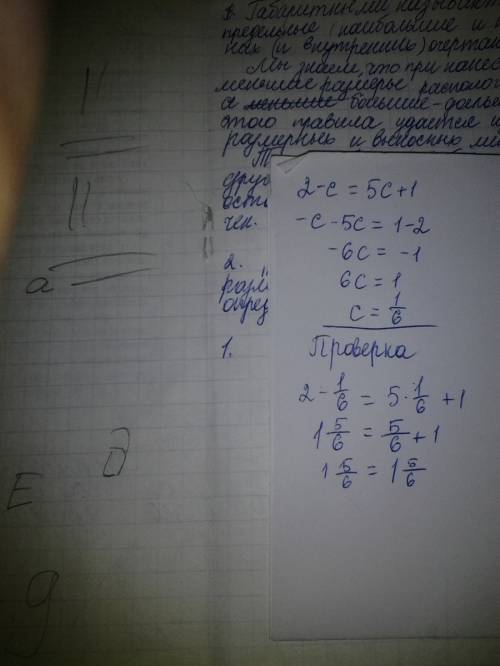 Габаритными называют
предельные (наибольшие и
(и внутренних) очертан
Мы знаем, что при нанес
меньшие размеры располо
а меньшие большие - дальше
этого правила удается
размерных и выносных
друг
чен.
2.
1.
2-c = 5c+1
-c-5c = 1-2
-6c = -1
6c = 1
c = 1/6
Проверка
2-1/6 = 5·1/6 +1
1 5/6 = 5/6 +1
1 5/6 = 1 5/6
a
д
E
g